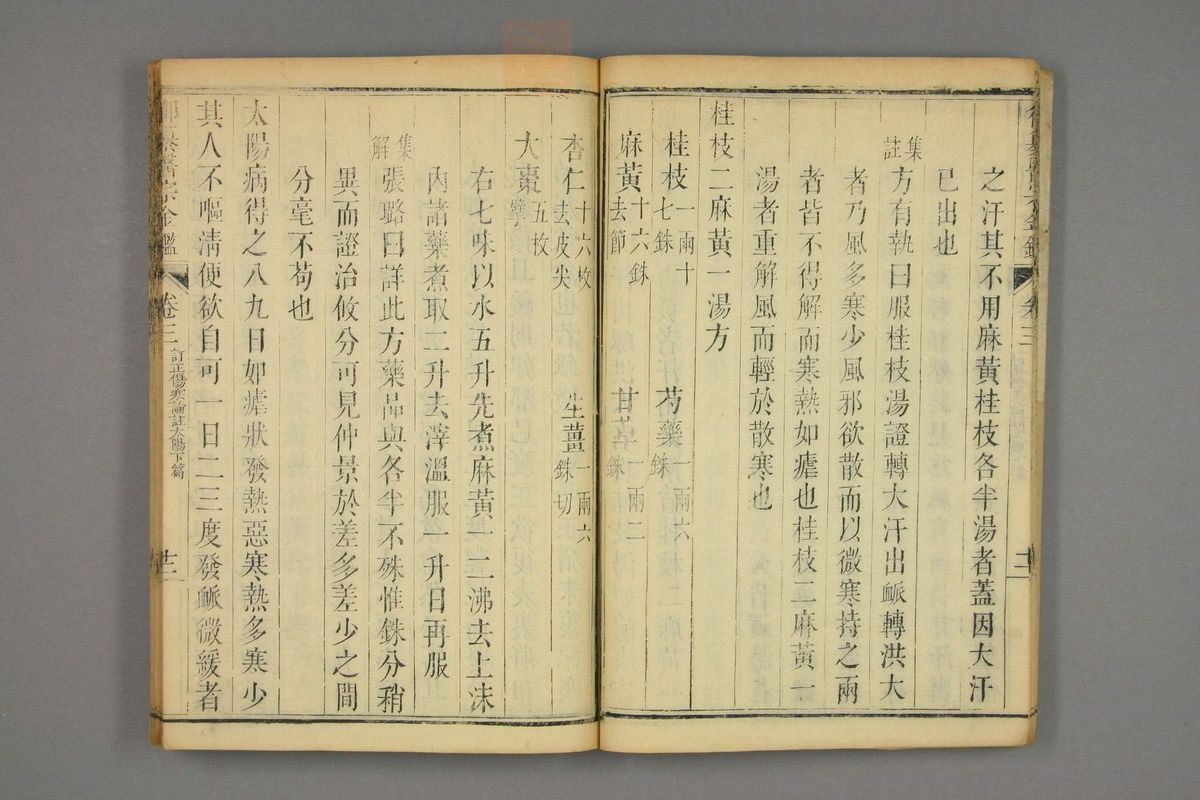 之汗其不用麻黃桂枝各半湯者蓋因大汗
已出也
集註
方有執曰服桂枝湯證轉大汗出脈轉洪大
者乃風多寒少風邪欲散而以微寒持之兩
者皆不得解而寒熱如瘧也桂枝二麻黃一
湯者重解風而輕於散寒也
桂枝二麻黃一湯方
桂枝一兩十七銖 芍藥一兩六銖
麻黃十六銖去節 甘草一兩二銖
杏仁十六枚去皮尖 生薑一兩六銖切
大棗五枚擘
右七味以水五升先煮麻黃一二沸去上沫
內諸藥煮取二升去滓溫服一升日再服
集解
張璐曰詳此方藥品與各半不殊惟銖分稍
異而證治攸分可見仲景於差多差少之間
分毫不苟也
太陽病得之八九日如瘧狀發熱惡寒熱多寒少
其人不嘔清便欲自可一日二三度發脈微緩者
醫宗金鑑 卷三 訂正傷寒論註太陽下篇